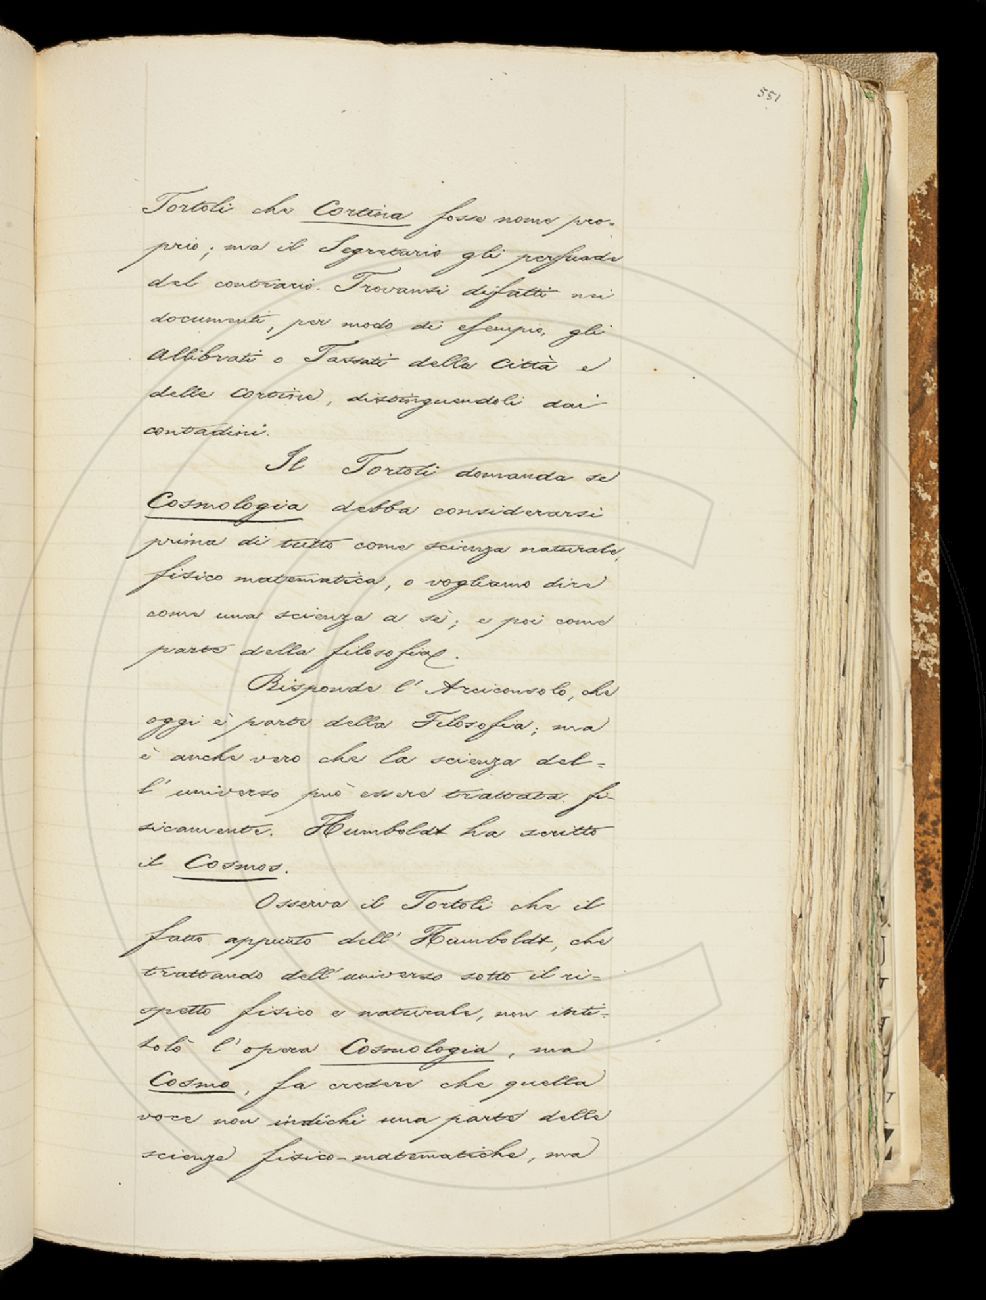 551
Tortoli che Cortina fosse nome pro-
prio; ma il Segretario gli persuade
del contrario. Trovansi difatti nei
documenti, per modo di esempio, gli
Allibrati o Tassati della Città e
delle Cortine, distinguendoli dai
contadini.
Il Tortoli domanda se
Cosmologia debba considerarsi
prima di tutto come scienza naturale,
fisico matematica, o vogliamo dire
come una scienza a sè; e poi come
parte della filosofia.
Risponde l' Arciconsolo, che
oggi è parte della Filosofia; ma
è anche vero che la scienza del-
l' universo può essere trattata fi-
sicamente. Humboldt ha scritto
il Cosmos.
Osserva il Tortoli che il
fatto appunto dell' Humboldt, che
trattando dell' universo sotto il ri-
spetto fisico e naturale, non inti-
tolò l' opera Cosmologia, ma
Cosmo, fa credere che quella
voce non indichi una parte delle
scienze fisico-matematiche, ma